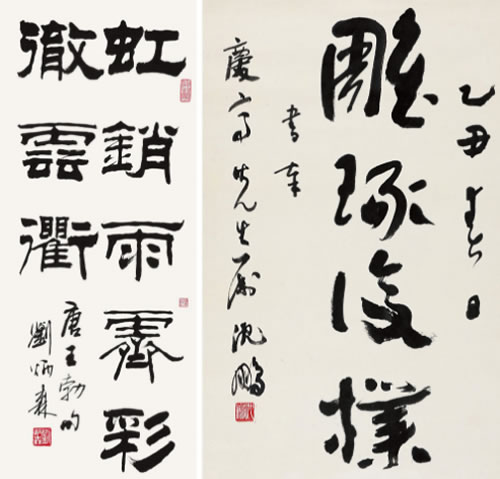 虹銷雨霽彩
徹雲衢
唐王勃句
劉炳森
乙丑春日
雕琢復樸
書奉
慶先生屬沈鵬